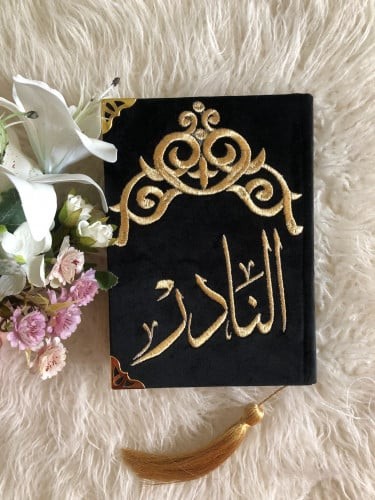 النادر